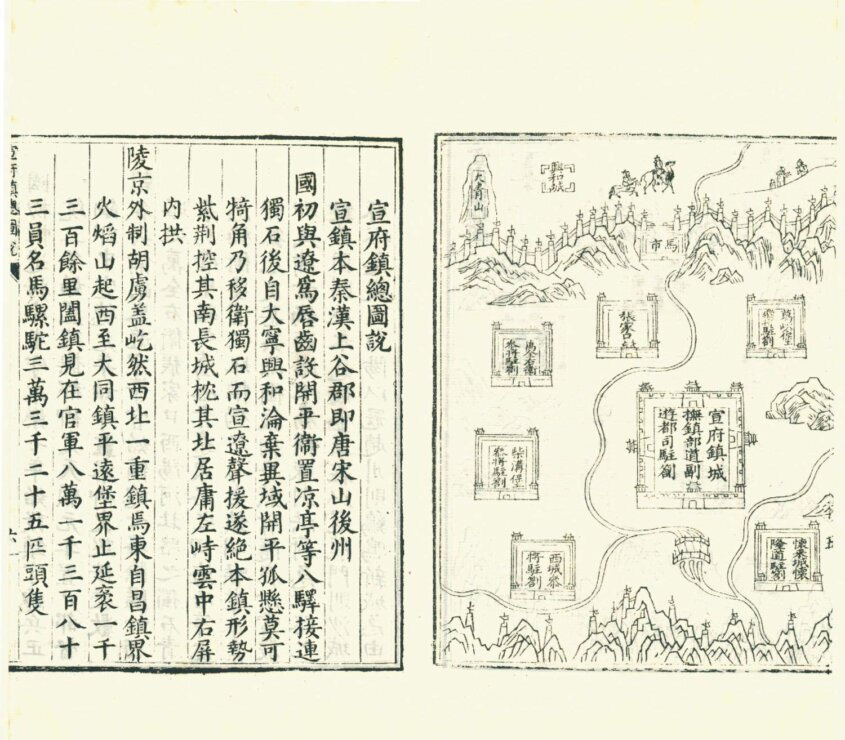 興和城
大青山
馬市
張家口
萬全右衛
參將駐劄
宣府鎮城
撫鎮部道副
遊都司駐劄
柴溝堡
參將駐劄
懷來城懷
隆道駐劄
西城參
將駐劄
宣府鎮總圖說
宣鎮本秦漢上谷郡即唐宋山後州
國初與遼為唇齒設開平衛置凉亭等八驛接連
獨石後自大寧興和淪棄異域開平孤懸莫可
犄角乃移衛獨石而宣遼聲援遂絶本鎮形勢
紫荆控其南長城枕其北居庸左峙雲中右屏
內拱
陵京外制胡虜盖屹然西北一重鎮焉東自昌鎮界
火焰山起西至大同鎮平遠堡界止延袤一千
三百餘里闔鎮見在官軍八萬一千三百八十
三員名馬騾駝三萬三千二十五匹頭隻
宣府鎮總圖說
六